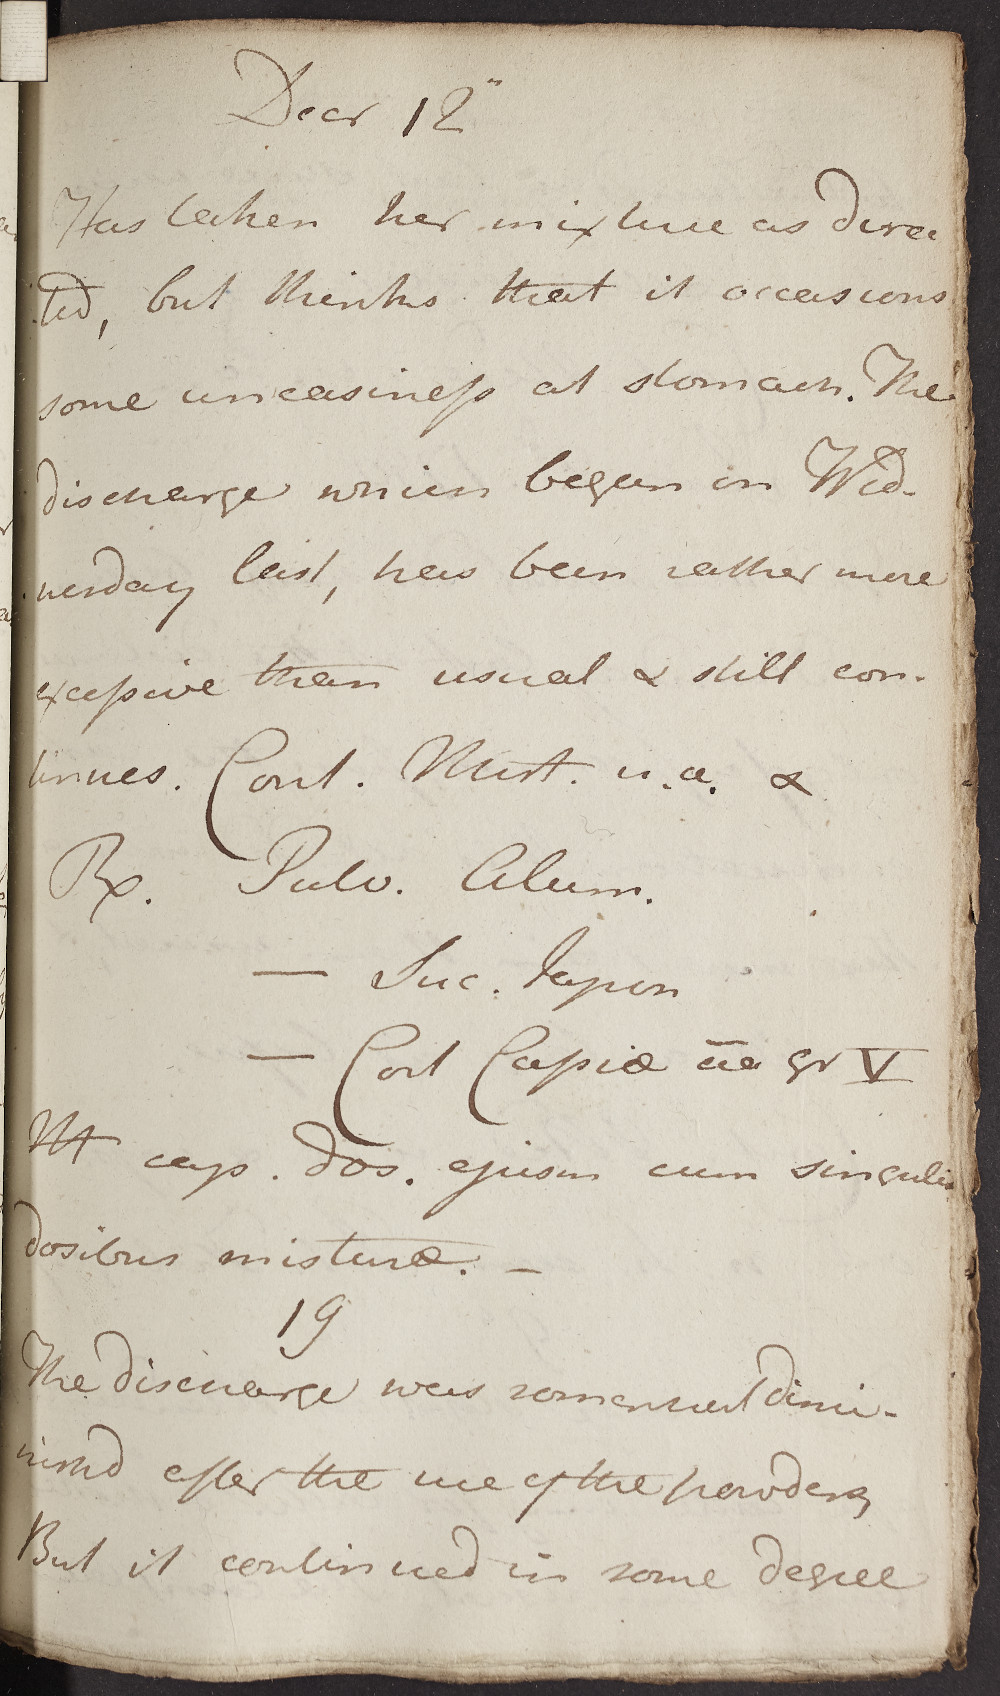 Decr 12"
Has taken her mixture as direc
ted, but thinks that it occasions
some uneasiness at stomach. The
discharge which began on Wed-
nesday last, has been rather more
excessive than usual & still con-
tinues. Cont. Mist. u.a. &
Rx. Pulv. Alum.
— Suc. Japon
— Cort Cassiæ āa gr V
M cap. dos. ejusm cum singulis
dosibus misturæ. —
19
The discharge was somewhat dimi-
nishd after the use of the powders,
But it continued in some degree